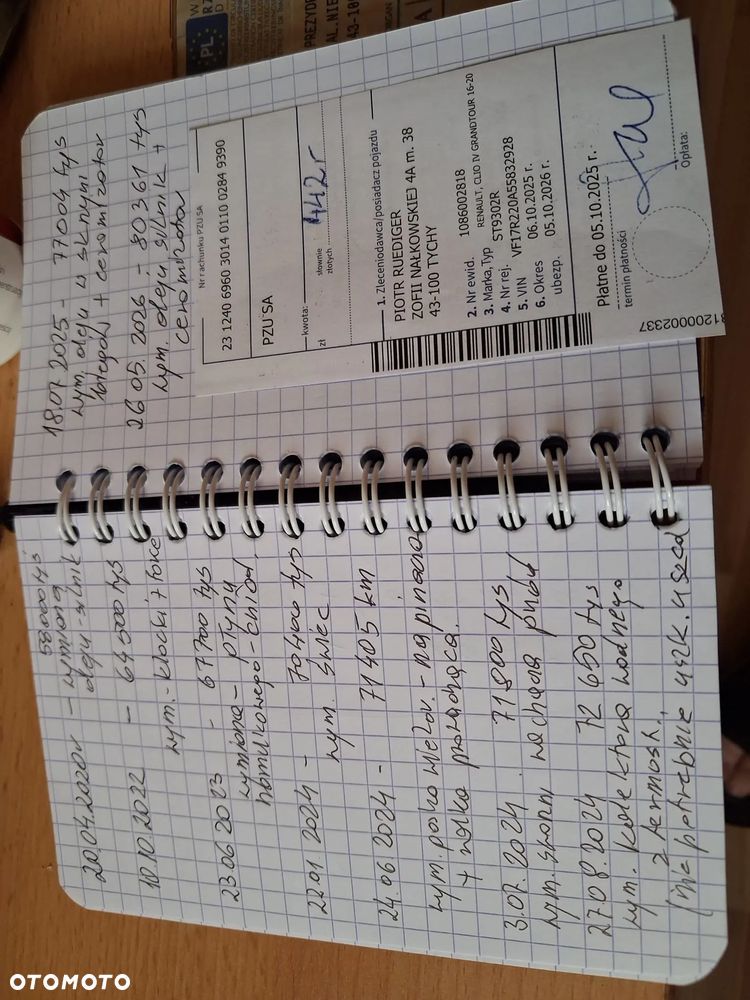 58000 tys
20.04.2020r – wymiana
oleju silnik
18.10.2022 – 64500 tys
wym. klocki + tarcze
23.06.2023 – 67700 tys
wymiana – płyny
hamulcowego – chłod.
22.01.2024 – 70400 tys
wym. świec
24.06.2024 – 71405 km
wym. paska wielow. – napinacza
+ rolka prowadząca.
3.07.2024. 71800 tys
wym. sondy
27.08.2024 72650 tys
wym. kolektora wodnego
z termost.
(nie potrzebnie uszk. uszcz
18.07.2025 – 77004 tys
wym. oleju w skrzyni
biegów + ceramizator
26.05.2026 – 80361 tys
wym. oleju silnik +
ceramizator
Nr rachunku PZU SA
23 1240 6960 3014 0110 0284 9390
PZU SA
kwota:
442 r
zł
słownie
złotych
1. Zleceniodawca/posiadacz pojazdu
PIOTR RUEDIGER
ZOFII NAŁKOWSKIEJ 4A m. 38
43-100 TYCHY
2. Nr ewid. 1086002818
3. Marka,Typ RENAULT, CLIO IV GRANDTOUR 16-20
4. Nr rej. ST9302R
5. VIN VF17R220A55832928
6. Okres 06.10.2025 r.
ubezp. 05.10.2026 r.
Płatne do 05.10.2025 r.
termin płatności
Opłata:
31200002337
PL
OTOMOTO